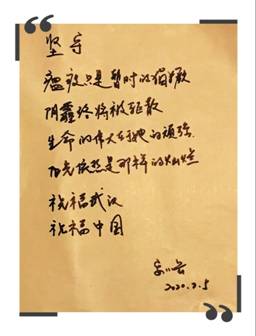 坚守
瘟疫只是暂时的猖獗
阴霾终将被驱散
生命的伟大在她的顽强
阳光依然是那样的灿烂
祝福武汉
祝福中国
2020.2.5